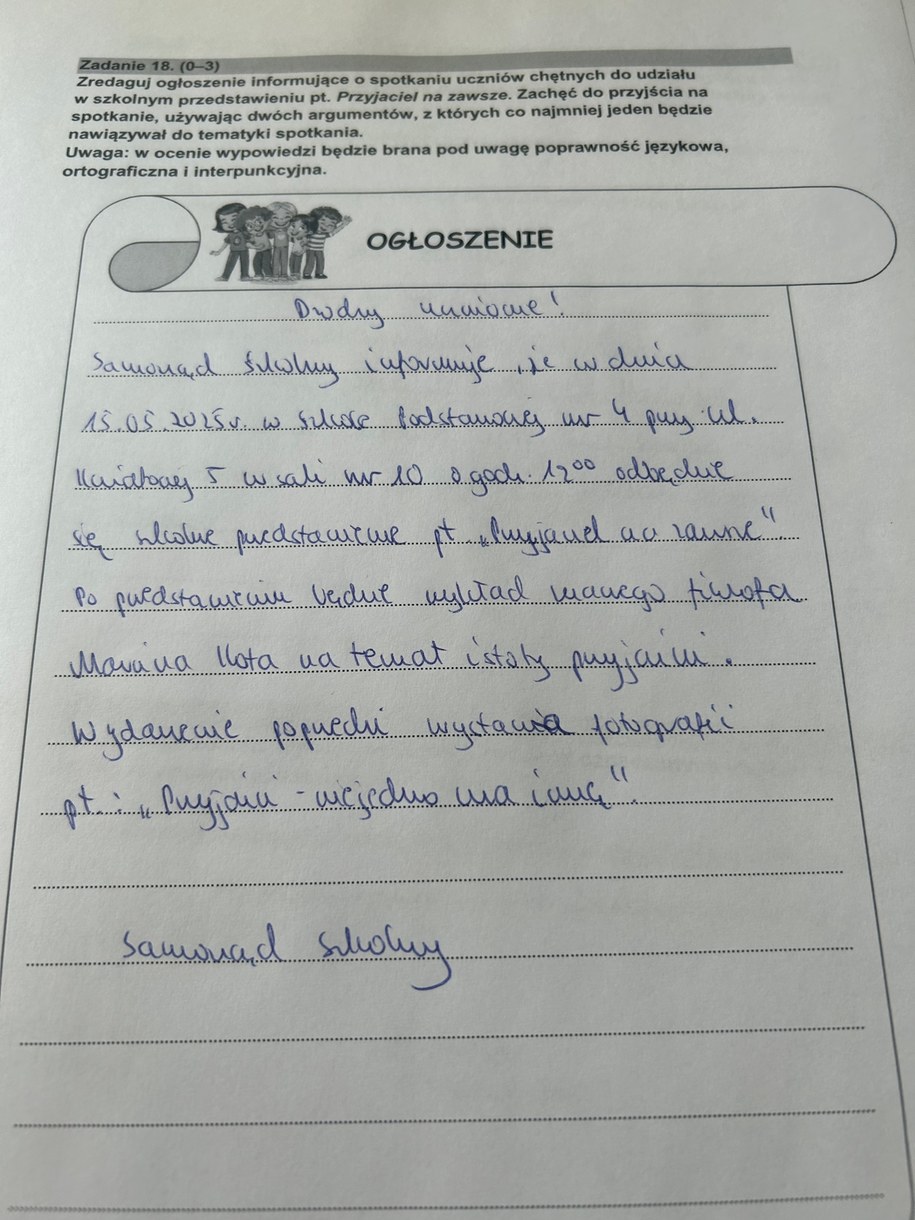 Zadanie 18. (0–3)
Zredaguj ogłoszenie informujące o spotkaniu uczniów chętnych do udziału
w szkolnym przedstawieniu pt. Przyjaciel na zawsze. Zachęć do przyjścia na
spotkanie, używając dwóch argumentów, z których co najmniej jeden będzie
nawiązywał do tematyki spotkania.
Uwaga: w ocenie wypowiedzi będzie brana pod uwagę poprawność językowa,
ortograficzna i interpunkcyjna.
OGŁOSZENIE
Drodzy uczniowie!
Samorząd szkolny informuje, że w dniu
15.05.2025r. w Szkole Podstawowej nr 4 przy ul.
Kwiatowej 5 w sali nr 10 o godz. 12⁰⁰ odbędzie
się szkolne przedstawienie pt. „Przyjaciel na zawsze".
Po przedstawieniu będzie wykład znanego filozofa
Marcina Kota na temat istoty przyjaźni.
Wydarzenie poprzedzi wystawa fotografii
pt.: „Przyjaźń – niejedno ma imię".
Samorząd szkolny